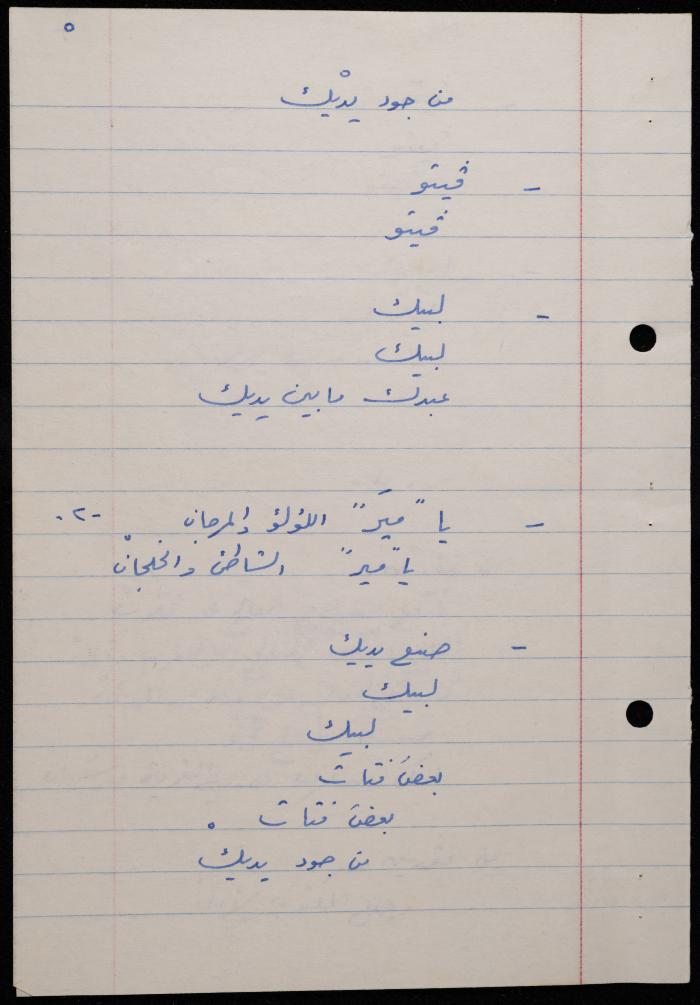 ٥
من جود يديْك
- ڤيتو
ڤيتو
- لبيك
لبيك
عبدك ما بين يديك
- يا "ميَر" اللؤلؤ والمرجان -٢٠
يا "مير" الشاطئ والخلجانْ
- صنع يديك
لبيك
لبيك
بعضَ فتات
بعضَ فتات
من جود يديكْ